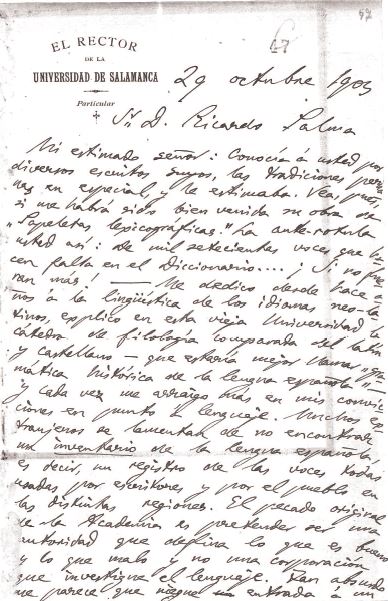 57
EL RECTOR
DE LA
UNIVERSIDAD DE SALAMANCA
Particular
29 octubre 1903
Sr D. Ricardo Palma
Mi estimado señor: Conocía a usted por
diversos escritos suyos, las Tradiciones perua
nas en especial, y le estimaba. Vea, pues,
si me habrá sido bien venida su obra de
"Papeletas lexicográficas." La ante-rotula
usted así: De mil setecientas voces que ha
cen falta en el Diccionario....; ¡Si no fue
ran más! — Me dedico desde hace
nos a la lingüística de los idiomas neo-la
tinos, explico en esta vieja Universidad
cátedra de filología comparada del latín
y castellano — que estaría mejor llamar "gra
mática histórica de la lengua española" —
y cada vez me arraigo más en mis convic
ciones en punto a lenguaje. Muchos ex
tranjeros se lamentan de no encontrar
un inventario de la lengua española
es decir, un registro de las voces todas
usadas por escritores y por el pueblo en
las distintas regiones. El pecado original
de la Academia es pretender ser una
autoridad que defina lo que es bueno
y lo que malo y no una corporación
que investigue el lenguaje. Tan absurdo
me parece que niegue entrada a un